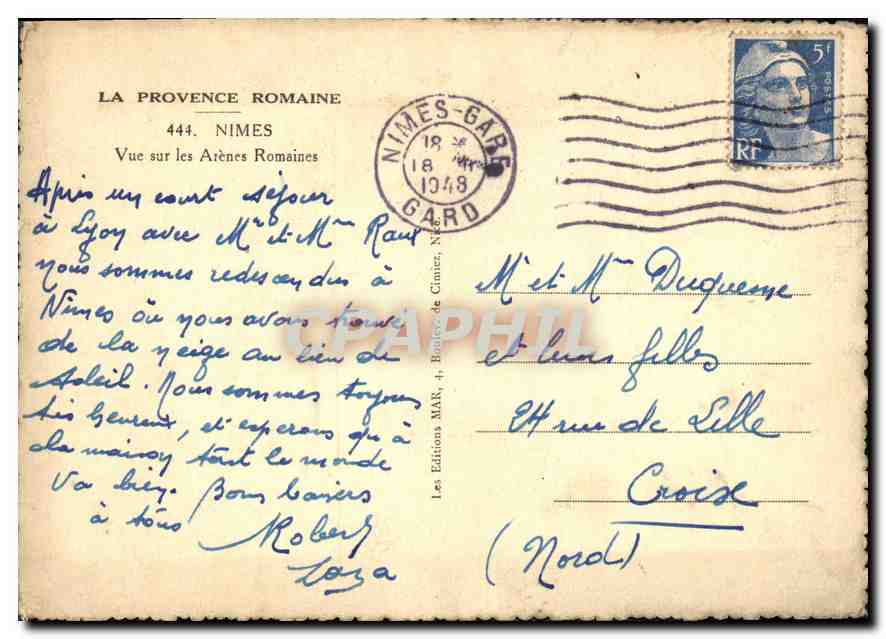 LA PROVENCE ROMAINE
444. NIMES
Vue sur les Arènes Romaines
Après un court séjour
à Lyon avec Mr et Mme Raux
nous sommes redescendus à
Nîmes où nous avons trouvé
de la neige au lieu de
soleil. Nous sommes toujours
très heureux, et espérons qu'à
la maison tout le monde
va bien. Bons baisers
à tous
Robert
NIMES-GARE
18
18
1948
GARD
5f
POSTES
RF
Les Editions MAR, 4, Boulev. de Cimiez, Nice
Mr et Mme Duquesne
et leurs filles
24 rue de Lille
Croix
(Nord)
CPAPHIL